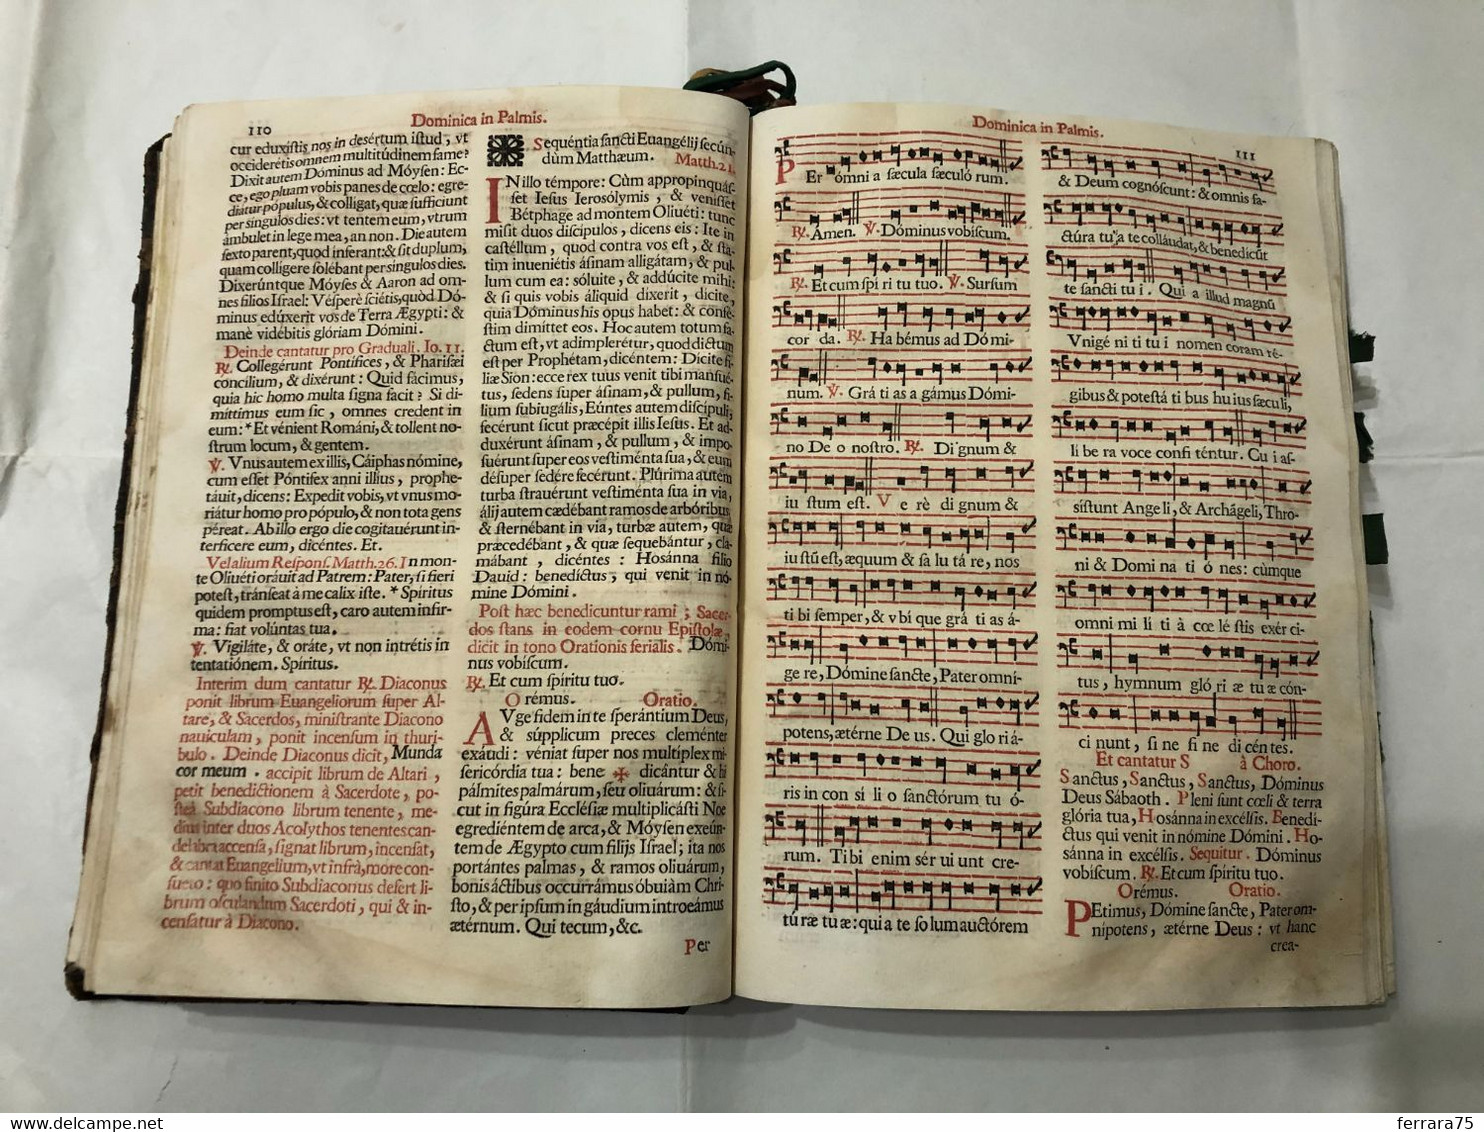 110
Dominica in Palmis.
cur eduxistis nos in desértum istud, vt
occiderétis omnem multitúdinem fame?
Dixit autem Dóminus ad Móysen: Ec-
ce, ego pluam vobis panes de cœlo: egre-
diatur pópulus, & colligat, quæ sufficiunt
per singulos dies: vt tentem eum, vtrum
ámbulet in lege mea, an non. Die autem
sexto parent, quod inferant: & sit duplum,
quam colligere solébant per singulos dies.
Dixerúntque Móyses & Aaron ad om-
nes filios Israel: Vésperè sciétis, quòd Dó-
minus edúxerit vos de Terra Ægypti: &
manè vidébitis glóriam Dómini.
Deinde cantatur pro Graduali. Io. 11.
℟. Collegérunt Pontífices, & Pharisæi
concílium, & dixérunt: Quid fácimus,
quia hic homo multa signa facit? Si di-
míttimus eum sic, omnes credent in
eum: * Et vénient Románi, & tollent no-
strum locum, & gentem.
℣. Vnus autem ex illis, Cáiphas nómine,
cùm esset Póntifex anni illíus, prophe-
táuit, dicens: Expedit vobis, vt vnus mo-
riátur homo pro pópulo, & non tota gens
péreat. Ab illo ergo die cogitauérunt in-
terfícere eum, dicéntes. Et.
Vel alium Respons. Matth. 26. In mon-
te Oliuéti oráuit ad Patrem: Pater, si fieri
potest, tránseat à me calix iste. * Spíritus
quidem promptus est, caro autem infir-
ma: fiat volúntas tua.
℣. Vigiláte, & oráte, vt non intrétis in
tentatiónem. Spíritus.
Interim dum cantatur ℟. Diaconus
ponit librum Euangeliorum super Al-
tare, & Sacerdos, ministrante Diacono
nauiculam, ponit incensum in thuri-
bulo. Deinde Diaconus dicit, Munda
cor meum. accipit librum de Altari,
petit benedictionem à Sacerdote, po-
steà Subdiacono librum tenente, me-
dius inter duos Acolythos tenentes can-
delabra accensa, signat librum, incensat,
& cantat Euangelium, vt infrà, more con-
sueto: quo finito Subdiaconus defert li-
brum osculandum Sacerdoti, qui & in-
censatur à Diacono.
Sequéntia sancti Euangélij secún-
dùm Matthæum. Matth. 21.
IN illo témpore: Cùm appropinquás-
set Iesus Ierosólymis, & venísset
Bétphage ad montem Oliuéti: tunc
misit duos discípulos, dicens eis: Ite in
castéllum, quod contra vos est, & sta-
tim inueniétis ásinam alligátam, & pul-
lum cum ea: sóluite, & addúcite mihi:
& si quis vobis áliquid dixerit, dícite,
quia Dóminus his opus habet: & confé-
stim dimíttet eos. Hoc autem totum fa-
ctum est, vt adimplerétur, quod dictum
est per Prophétam, dicéntem: Dícite fí-
liæ Sion: ecce rex tuus venit tibi mansué-
tus, sedens super ásinam, & pullum, fí-
lium subiugális, Eúntes autem discípuli,
fecérunt sicut præcépit illis Iesus. Et ad-
duxérunt ásinam, & pullum, & impo-
suérunt super eos vestiménta sua, & eum
désuper sedére fecérunt. Plúrima autem
turba strauérunt vestiménta sua in via,
álij autem cædébant ramos de arbóribus
& sternébant in via, turbæ autem, quæ
præcedébant, & quæ sequebántur, cla-
mábant, dicéntes: Hosánna fílio
Dauid: benedíctus, qui venit in nó-
mine Dómini.
Post hæc benedicuntur rami; Sacer-
dos stans in eodem cornu Epistolæ,
dicit in tono Orationis ferialis. Dómi-
nus vobíscum.
℟. Et cum spíritu tuo.
Orémus. Oratio.
AVge fidem in te sperántium Deus,
& súpplicum preces cleménter
exáudi: véniat super nos múltiplex mi-
sericórdia tua: bene ✠ dicántur & hi
pálmites palmárum, seu oliuárum: & si-
cut in figúra Ecclésiæ multiplicásti Noe
egrediéntem de arca, & Móysen exeún-
tem de Ægypto cum fílijs Israel; ita nos
portántes palmas, & ramos oliuárum,
bonis áctibus occurrámus óbuiàm Chri-
sto, & per ipsum in gáudium introeámus
ætérnum. Qui tecum, &c.
Per
Dominica in Palmis.
111
PEr ómni a sæcula sæculó rum.
℟. Amen. ℣. Dóminus vobíscum.
℟. Et cum spí ri tu tuo. ℣. Sursum
cor da. ℟. Ha bémus ad Dó mi-
num. ℣. Grá ti as a gámus Dómi-
no De o nostro. ℟. Dí gnum &
iu stum est. Ve rè di gnum &
iu stũ est, æquum & sa lu tá re, nos
ti bi semper, & v bí que grá ti as á-
ge re, Dómine sancte, Pater omní-
potens, ætérne De us. Qui glo ri á-
ris in con sí li o sanctórum tu ó-
rum. Ti bi enim sér ui unt cre-
tú ræ tu æ: qui a te so lum auctórem
& Deum cognóscunt: & omnis fa-
ctúra tu a te colláudat, & benedicũt
te sancti tu i. Qui a illud magnũ
Vnigé ni ti tu i nomen coram ré-
gibus & potestá ti bus hu ius sæcu li,
lí be ra voce confi téntur. Cu i as-
sístunt Ange li, & Archángeli, Thro-
ni & Domi na ti ó nes: cùmque
omni mi lí ti â cœ lé stis exér ci-
tus, hymnum gló ri æ tu æ cón-
ci nunt, si ne fi ne di cén tes.
Et cantatur S à Choro.
Sanctus, Sanctus, Sanctus, Dóminus
Deus Sábaoth. Pleni sunt cœli & terra
glória tua, Hosánna in excélsis. Benedí-
ctus qui venit in nómine Dómini. Ho-
sánna in excélsis. Sequitur. Dóminus
vobíscum. ℟. Et cum spíritu tuo.
Orémus. Oratio.
PEtimus, Dómine sancte, Pater om-
nípotens, ætérne Deus: vt hanc
crea-
ferrara75